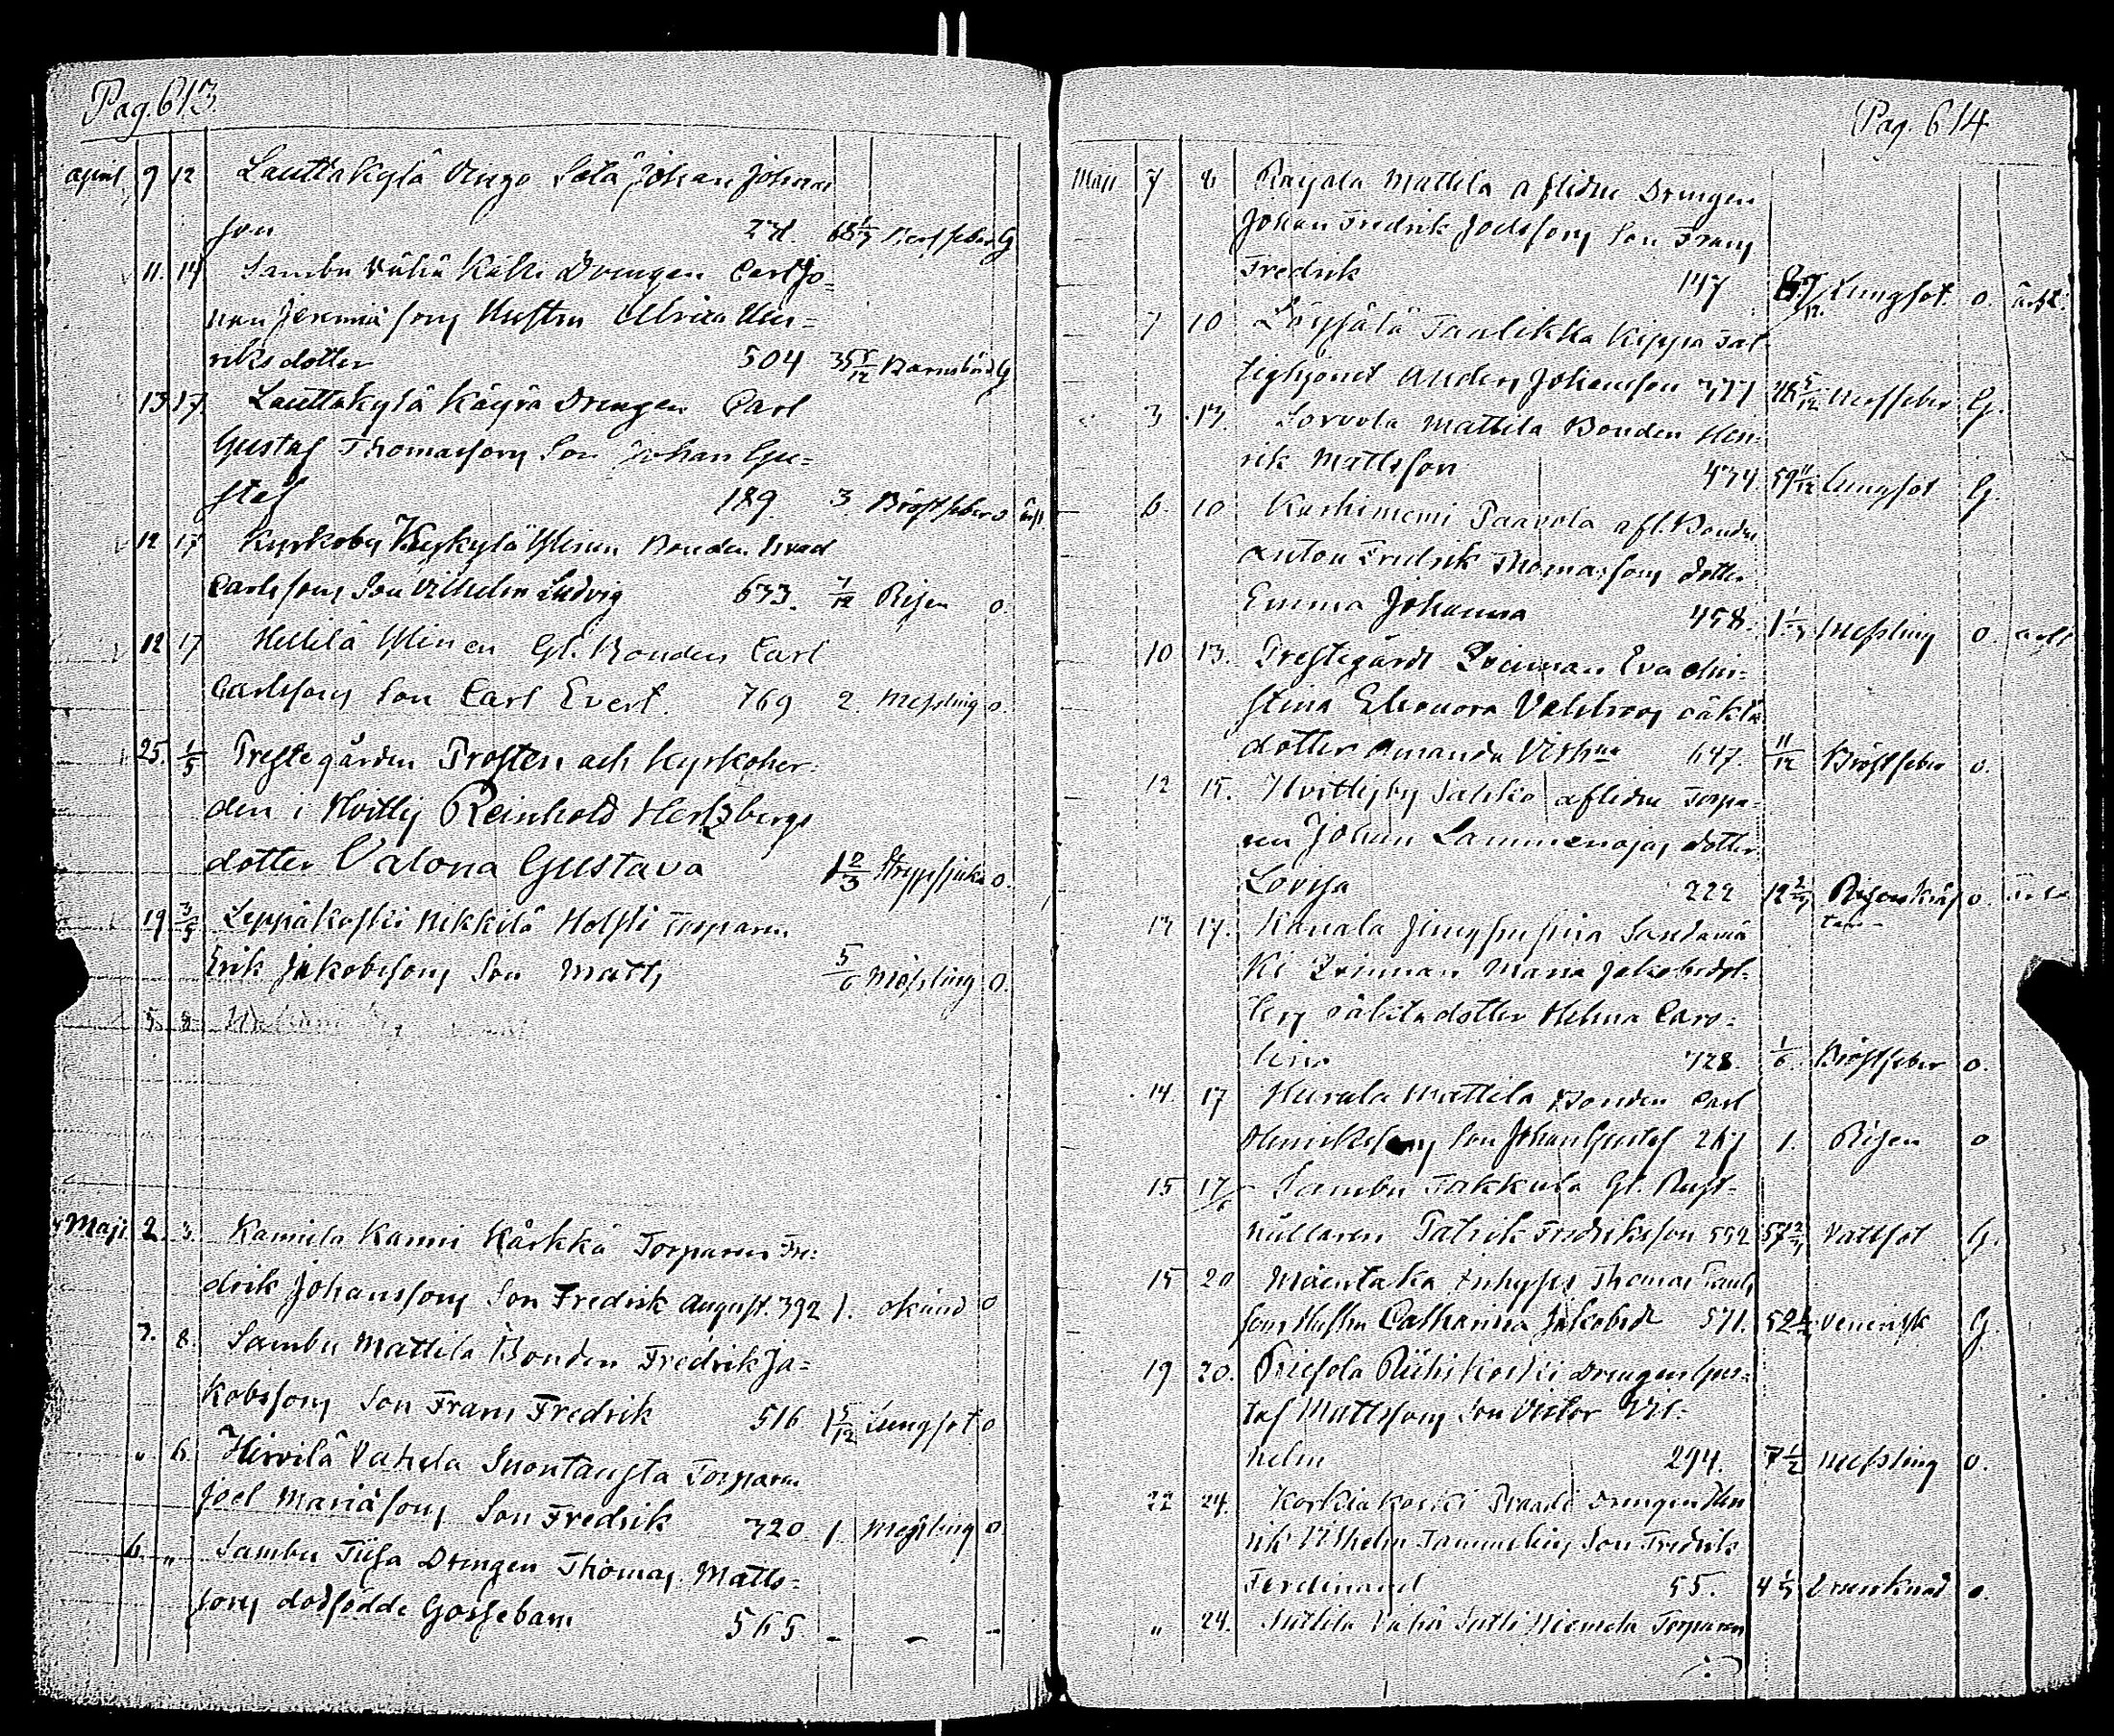 Pag. 613.
april 9 12 Lauttakylä Sotä Johan Johans
son 271. G
11. 14 Sambu Vähä Källi Drengen Carl Jo=
han Jeremiæ sons Hustru Ulrica Hen=
riksdotter 504 35 5/12 Barnsbörd G
13 17. Lauttakylä Käyrä Drengen Carl
Gustaf Thomassons Son Johan Gu=
staf 189. 3 Bröstfeber o
12 17 Kyrkoby Ylinen Bonden
Carlssons Son Vilhelm Ludvig 633. 7/12 Risen o.
12 17 Yli Gl. Bonden Carl
Carlssons Son Carl Evert. 769 2. Messling o.
25. 1/5 Prestegården Prosten och Kyrkoher=
den i Hvittis Reinhold Hertzbergs
dotter Valona Gustava 1 2/3 Strypsjuka o.
19 3/5 Leppäkoski Nikkilä Holsti Torparen
Erik Jakobssons Son Matts 5/6 Messling o.
5 8
Maji. 2. 3. Kamila Kanni Kärkkä Torparen Fre=
drik Johanssons Son Fredrik August. 392 1. okänd o
7. 8. Sambu Mattila Bonden Fredrik Ja=
kobssons Son Frans Fredrik 516 1 5/12 Lungsot o
„ 6 Hirvilä Vahela Torparen
Joel Mariæsons Son Fredrik 320 1 Messling o
6. „ Sambu Tiisa Drengen Thomas Matts=
sons dödfödde Gossebarn 565 - - -
Pag. 614
Maji 7 8 Raijala Mattila aflidne Drengen
Johan Fredrik Joelssons Son Frans
Fredrik 147 Lungsot. o.
7 10 Taalikka Keppa Fat=
tighjonet Anders Johansson 377 G.
3 13. Sorvola Mattila Bonden Hen=
rik Mattsson 474. 59 11/12 Lungsot G.
6. 10 Karhiniemi Paavola afl. Bonden
Anton Fredrik Thomassons dotter
Emma Johanna 458. Messling o.
10 13. Prestegårdt Qvinnan Eva Chri=
stina Eleonora oäkta
dotter Amanda 647. 11/12 Bröstfeber o.
12 15. Hvittisby Sahko aflidne Torpa=
ren Johan Lammenojas dotter
Lovisa 222 o.
13 17. Kanala
Qvinnan Maria Jakobsdot=
ters oäkta dotter Helena Caro=
lina 728. 1/6. Bröstfeber o.
14. 17 Hurula Mattila Bonden Carl
Henrikssons Son Johan Gustaf 267 1. Risen o
15 17 Sambu Takkula Gl. Rust=
hållaren Patrik Fredriksson 592 Vattsot G.
15 20 Mäentaka Inhyses Thomas Pauls
sons Hustru Catharina Jakobsd 571. Venerisk G.
19 20. Riesola Riihikoski Drengen Gus=
taf Mattssons Son Victor Vil=
helm 294. 7 1/2 Messling o.
22 24. Korkiakoski Praadi Drengen Hen
rik Vilhelm Tammelins Son Fredrik
Ferdinand 55. Drunknad o.
„ 24. Suttila Vähä Sutti Niemelä Torparen